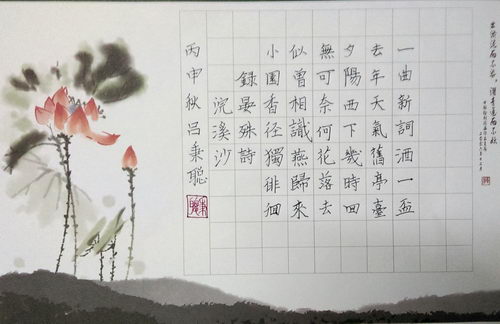 出淤泥而不染，濯清漣而不妖
一曲新詞酒一盃
去年天氣舊亭臺
夕陽西下幾時回
無可奈何花落去
似曾相識燕歸來
小園香徑獨徘徊
錄晏殊詩
浣溪沙
丙申秋呂秉聰